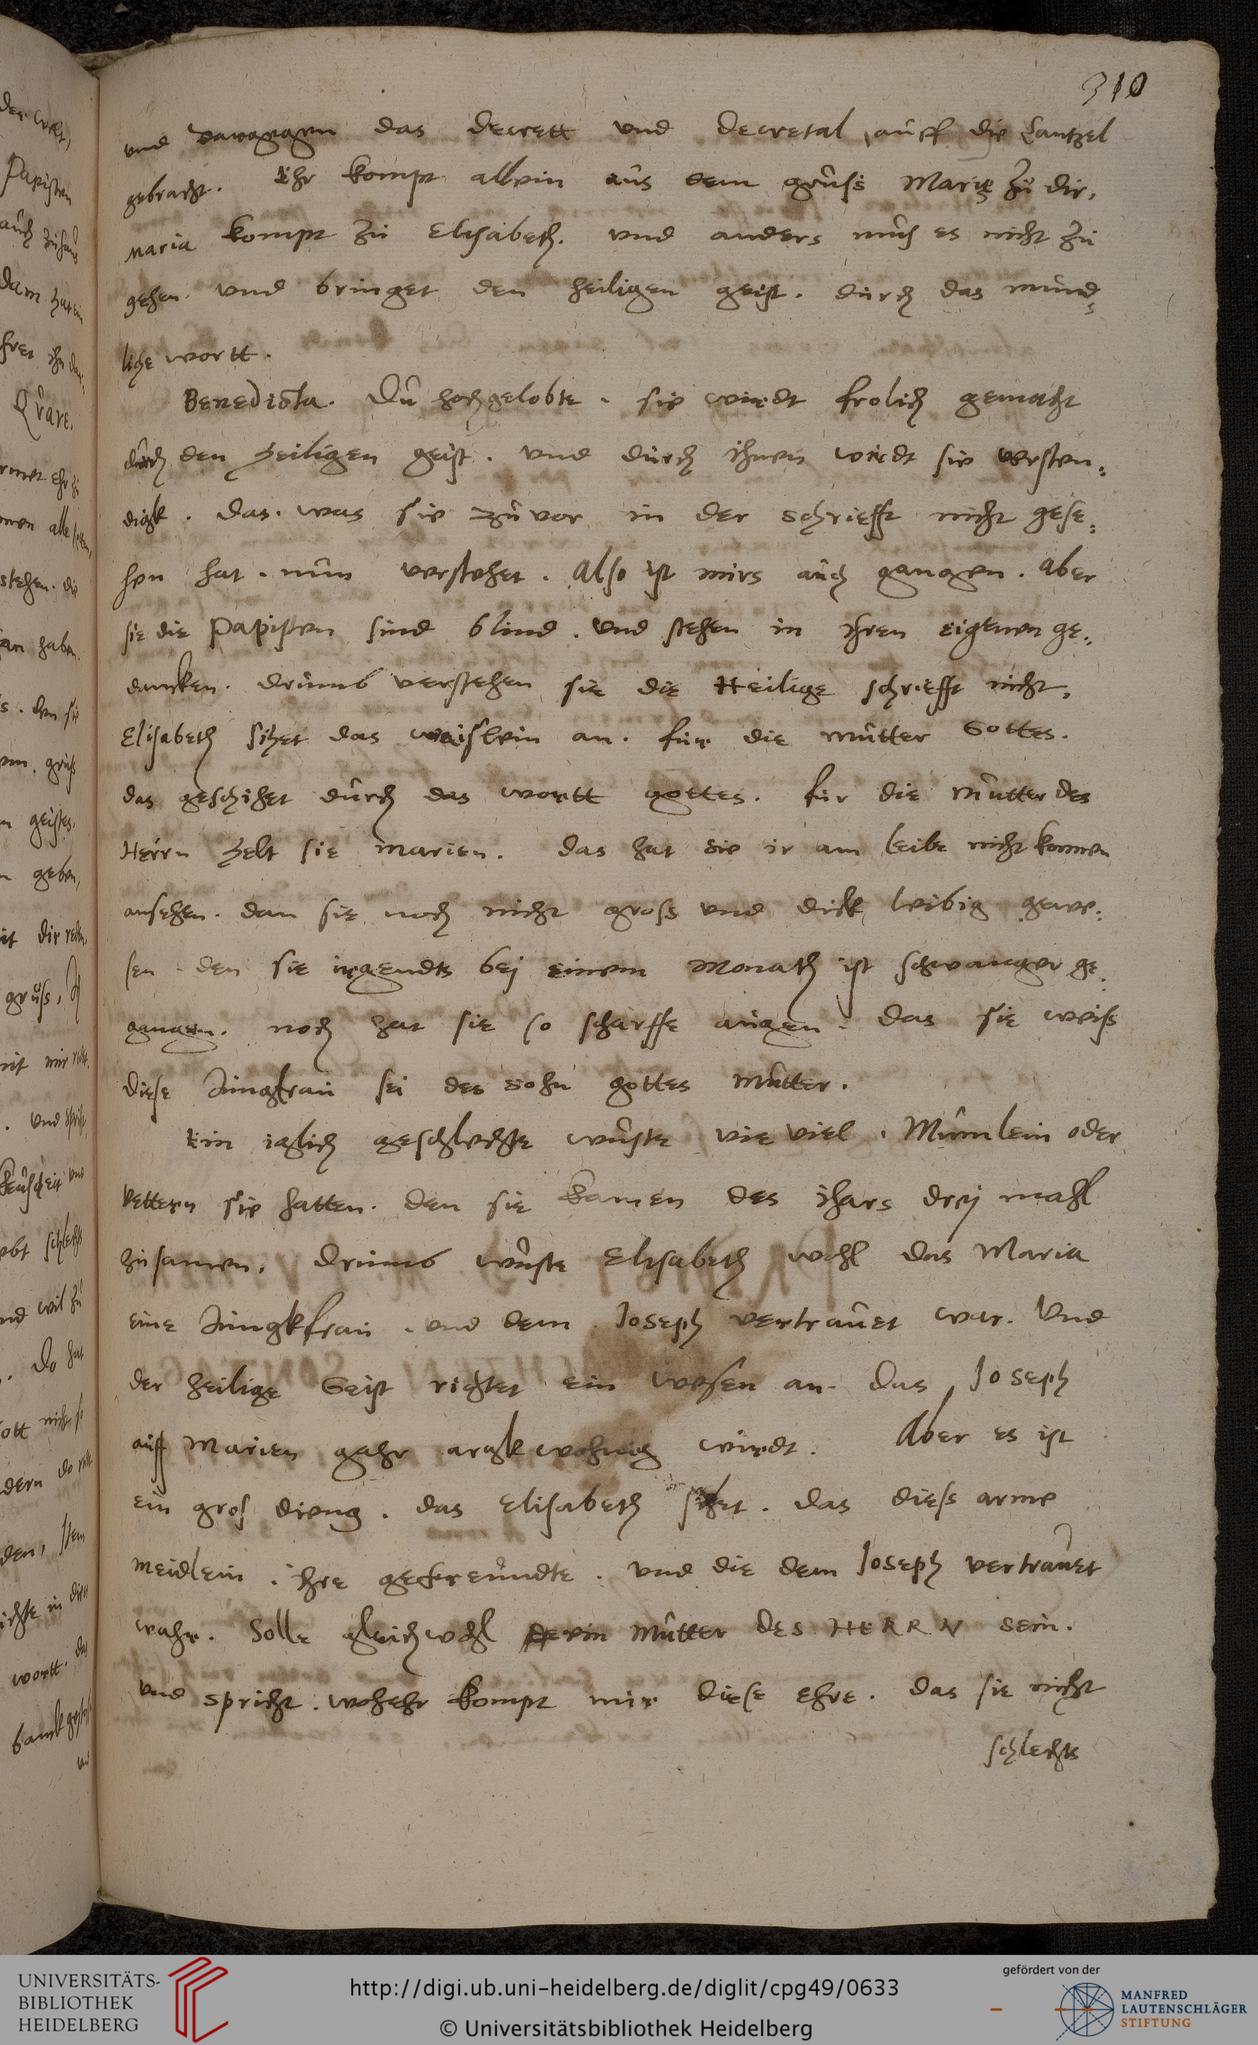 310
und dargegen das decrett und decretal auff die Cantzel
gebracht. Ehr kompt allein aus dem gruss Marię zu dir,
Maria kompt zu Elisabeth. und anders mus es nicht zu
gehen. und bringet den heiligen geist. durch das mund,
liche wortt.
Benedicta. Du hochgelobte. sie wirdt frolich gemacht
durch den heiligen geist. und durch ihnen wirdt sie versten,
digk. das. was sie zuvor in der schriefft nicht gese,
hen hat. nun verstehet. Also ist mirs auch gangen. Aber
sie die Papisten sind blind. und stehen in ihren eigenen ge,
dancken. drumb verstehen sie die Heilige schriefft nicht,
Elisabeth sihet das an. fur die mutter Gottes.
das geschihet durch das wortt gottes. fur die mutter des
Herrn helt sie Marien. das hat sie ir am leibe nicht konnen
ansehen. dan sie noch nicht gross und dick leibig gewe,
sen. den sie irgendts bej einem Monath ist schwanger ge,
gangen. noch hat sie so scharffe augen. das sie weiss
diese Jungfrau sei des sohn gottes Mutter.
Ein iglich geschlechte wuste wie viel. Mumlein oder
Vettern sie hatten. den sie kamen des ihars drej mahl
zusamen, drumb wuste Elisabeth wohl das Maria
eine Jungkfrau. und dem Joseph vertrauet war. Und
der heilige Geist richtet ein wesen an. das Joseph
auff Marien gahr argkwohnig wirdt. Aber es ist
ein gros dieng. das Elisabeth sihet. das diess arme
meidlein. ihre gefreundte. und die dem Joseph vertrauet
wahr. Solle gleichwohl ein Mutter DES HERRN sein.
und spricht. wohehr kompt mir diese ehre. das sie nicht
schlechts
UNIVERSITÄTS-
BIBLIOTHEK
HEIDELBERG
http://digi.ub.uni-heidelberg.de/diglit/cpg49/0633
© Universitätsbibliothek Heidelberg
gefördert von der
MANFRED
LAUTENSCHLÄGER
STIFTUNG